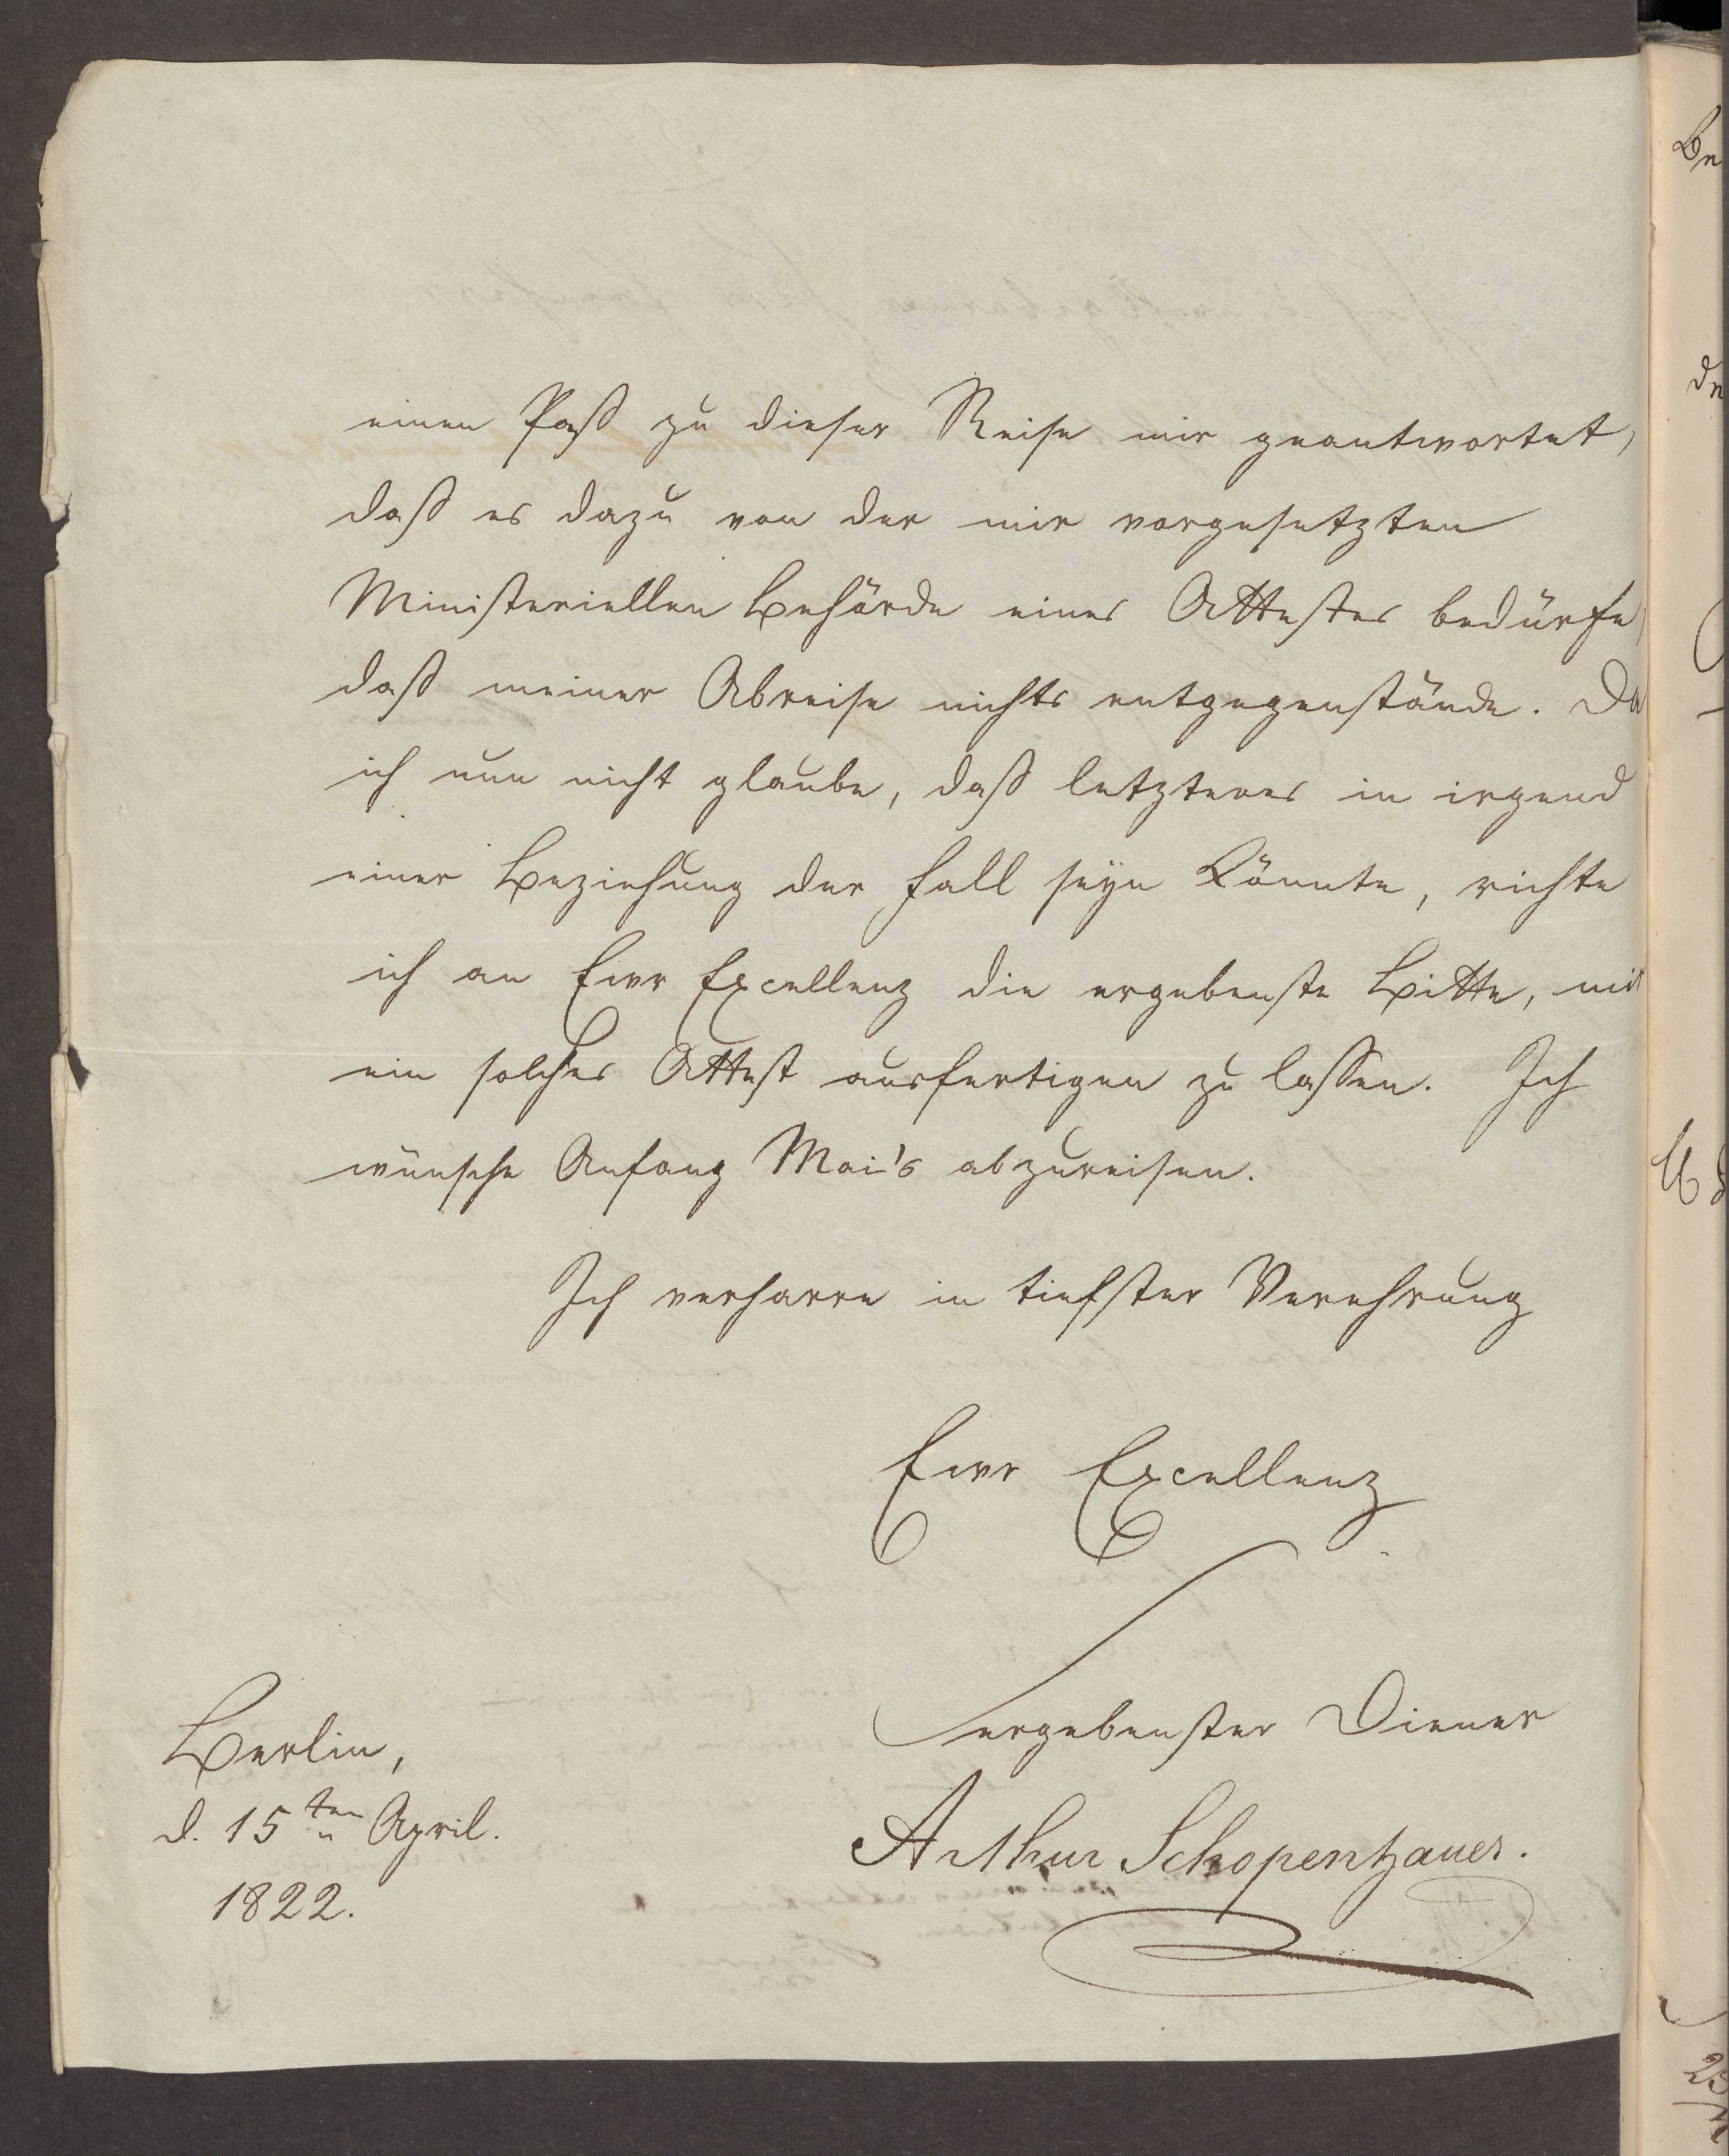 einen Paß zu dieser Reise mir geantwortet,
daß es dazu von der mir vorgesetzten
Ministeriellen Behörde eines Attestes bedürfe,
daß meiner Abreise nichts entgegenstände. Da
ich nun nicht glaube, daß letzteres in irgend
einer Beziehung der Fall seyn könnte, richte
ich an Ewr Excellenz die ergebenste Bitte, mir
ein solches Attest ausfertigen zu lassen. Ich
wünsche Anfang Mai's abzureisen.
Ich verharre in tiefster Verehrung
Ewr Excellenz
ergebenster Diener
Arthur Schopenhauer.
Berlin,
d. 15ten April.
1822.